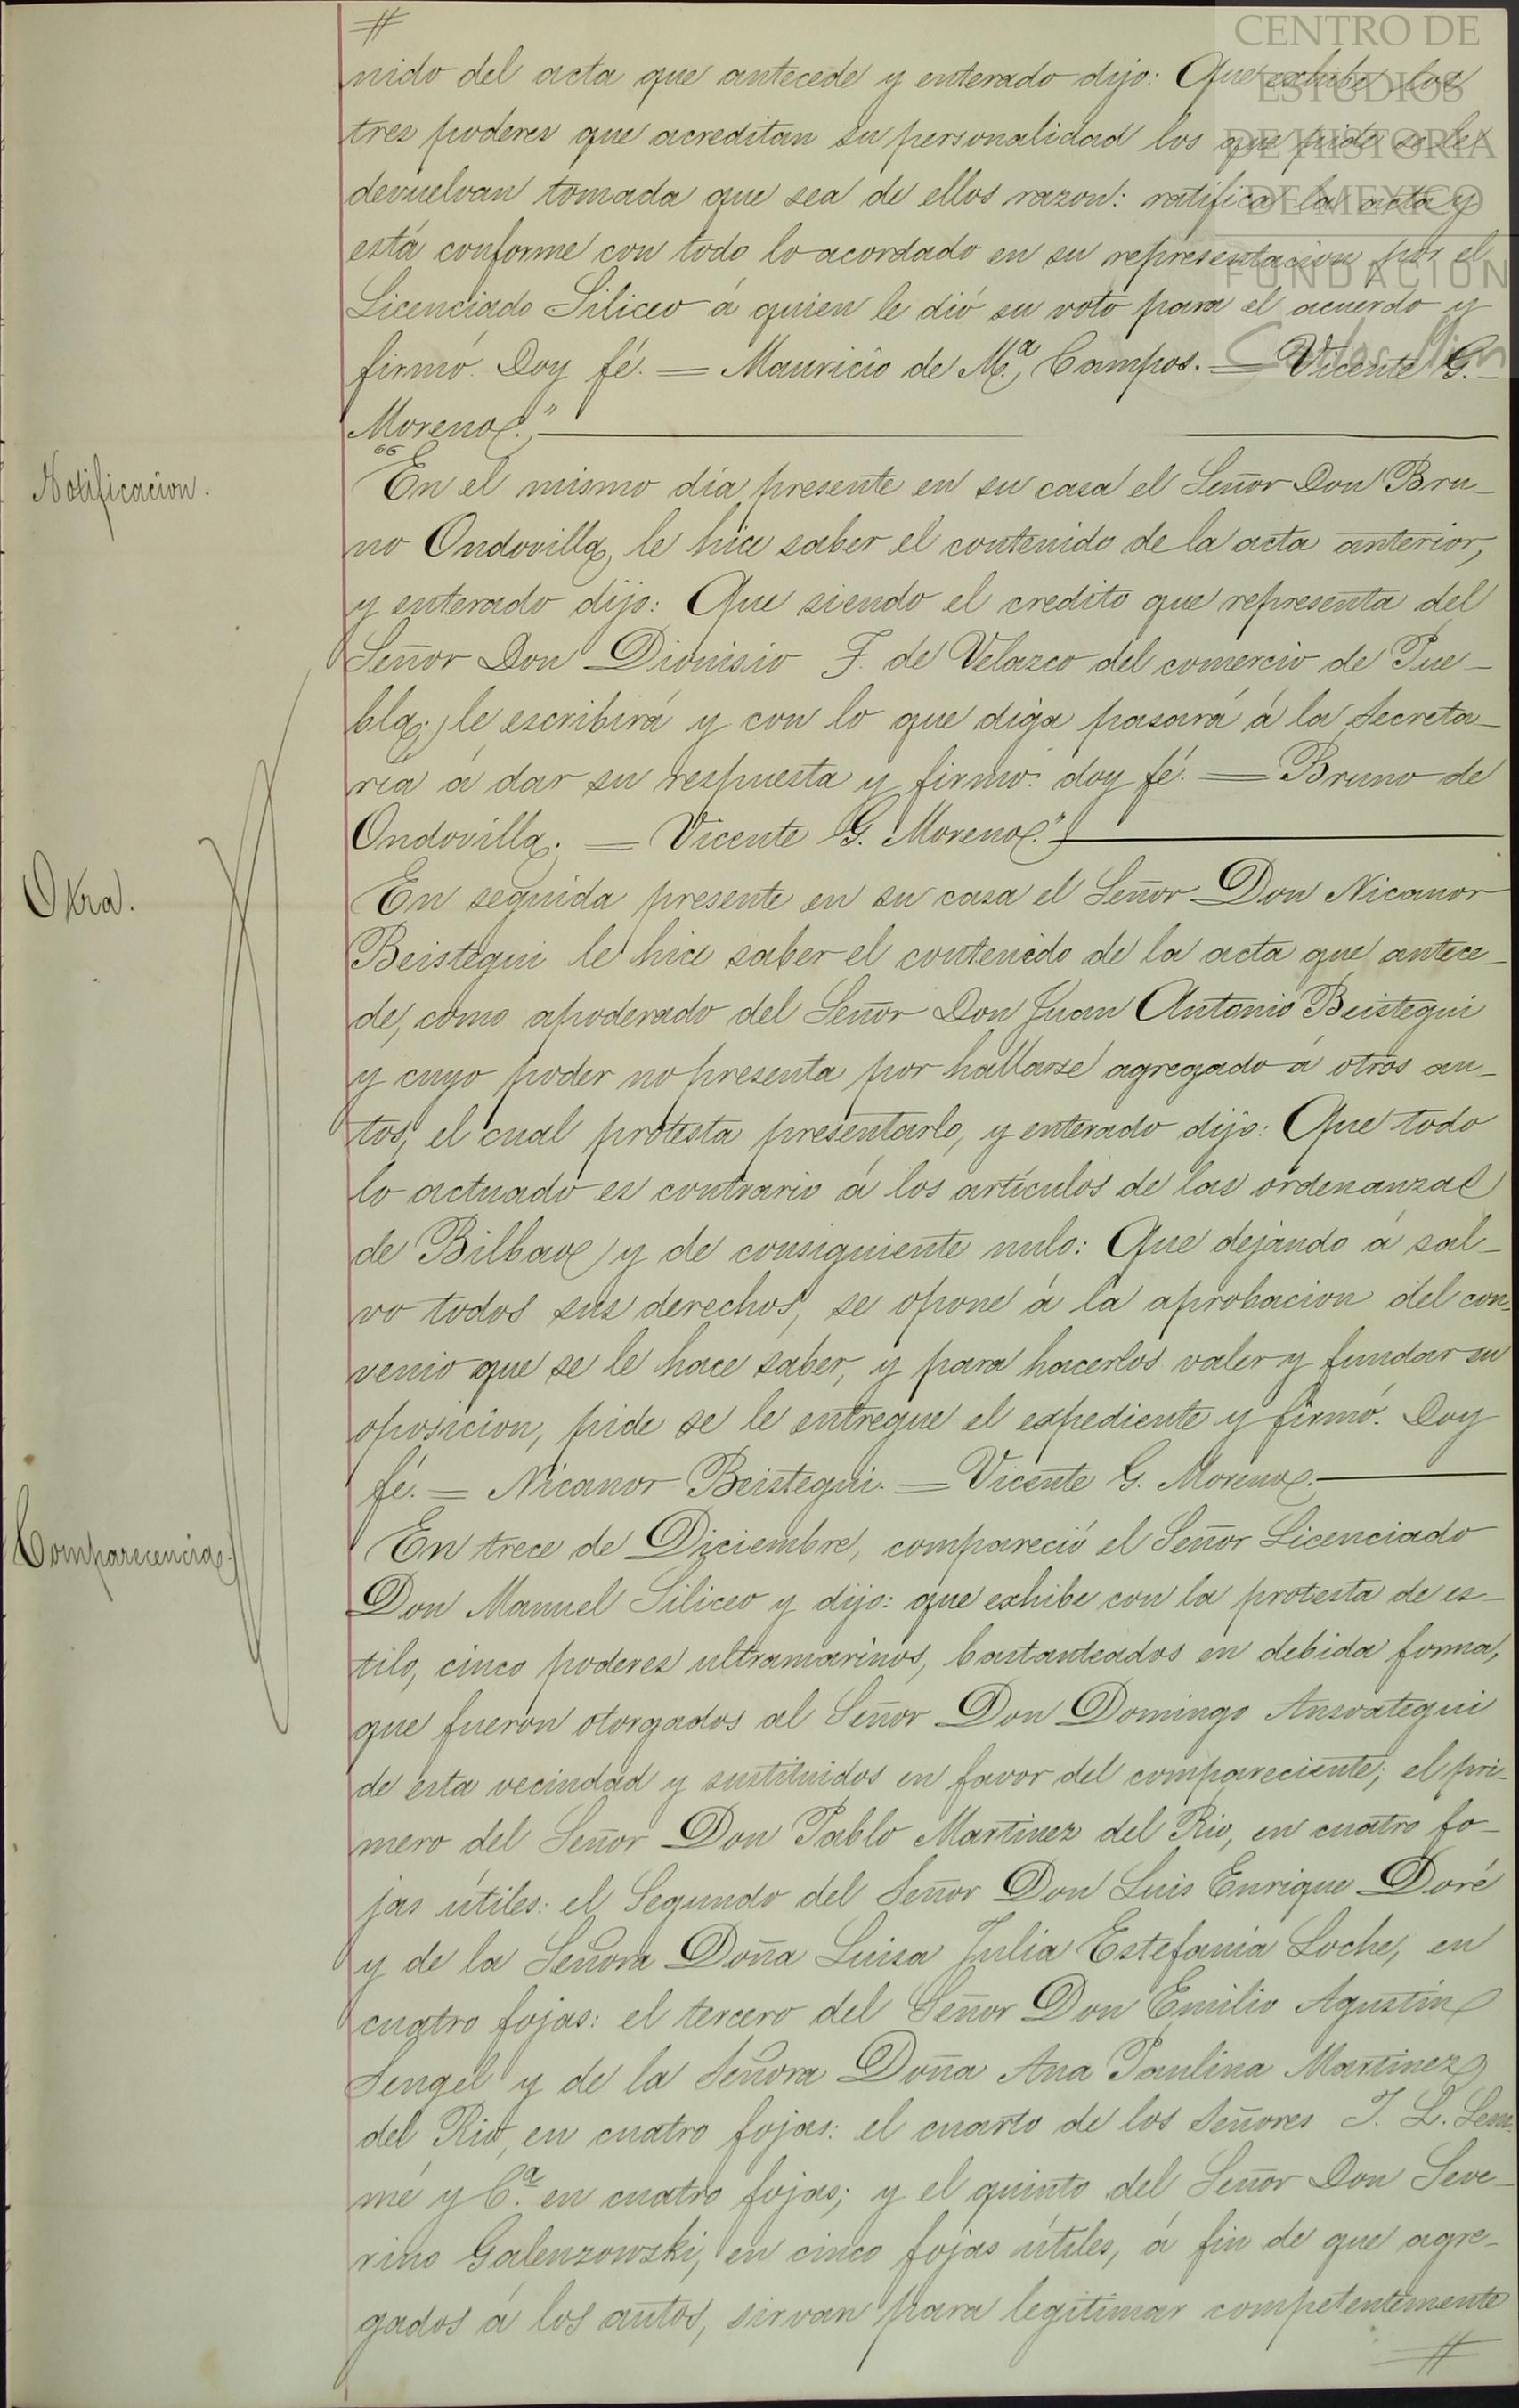 nido del acta que antecede y enterado dijo: Que exhibe los
tres poderes que acreditan su personalidad los que pide se le
devuelvan tomada que sea de ellos razon: ratifica la acta y
está conforme con todo lo acordado en su representacion por el
Licenciado Siliceo á quien le dió su voto para el acuerdo y
firmó. Doy fé. = Mauricio de Ma. Campos. = Vicente G.
Moreno."
Notificacion.
"En el mismo dia presente en su casa el Señor Don Bru-
no Ondovilla, le hice saber el contenido de la acta anterior,
y enterado dijo: Que siendo el credito que representa del
Señor Don Dionisio F. de Velazco del comercio de Pue-
bla; le escribirá y con lo que diga pasará á la Secreta-
ria á dar su respuesta y firmo: doy fé. = Bruno de
Ondovilla. = Vicente G. Moreno."
Otra.
En seguida presente en su casa el Señor Don Nicanor
Beistegui le hice saber el contenido de la acta que antece-
de, como apoderado del Señor Don Juan Antonio Beistegui
y cuyo poder no presenta por hallarse agregado á otros au-
tos, el cual protesta presentarlo, y enterado dijo: Que todo
lo actuado es contrario á los artículos de las ordenanzas
de Bilbao y de consiguiente nulo: Que dejando á sal-
vo todos sus derechos, se opone á la aprobacion del con-
venio que se le hace saber, y para hacerlos valer y fundar su
oposicion, pide se le entregue el expediente y firmó. Doy
fé. = Nicanor Beistegui. = Vicente G. Moreno.
Comparecencia.
En trece de Diciembre, compareció el Señor Licenciado
Don Manuel Siliceo y dijo: que exhibe con la protesta de es-
tilo, cinco poderes ultramarinos, bastanteados en debida forma,
que fueron otorgados al Señor Don Domingo Ansoategui
de esta vecindad y sustituidos en favor del compareciente; el pri-
mero del Señor Don Pablo Martinez del Rio, en cuatro fo-
jas útiles: el Segundo del Señor Don Luis Enrique Doré
y de la Señora Doña Luisa Julia Estefania Loche, en
cuatro fojas: el tercero del Señor Don Emilio Agustin
Sengel y de la Señora Doña Ana Paulina Martinez
del Rio, en cuatro fojas: el cuarto de los Señores J. L. Lem-
mé y Ca. en cuatro fojas; y el quinto del Señor Don Seve-
rino Galenzowski, en cinco fojas útiles, á fin de que agre-
gados á los autos, sirvan para legitimar competentemente
CENTRO DE
ESTUDIOS
DE HISTORIA
DE MEXICO
FUNDACION
Carlos Slim